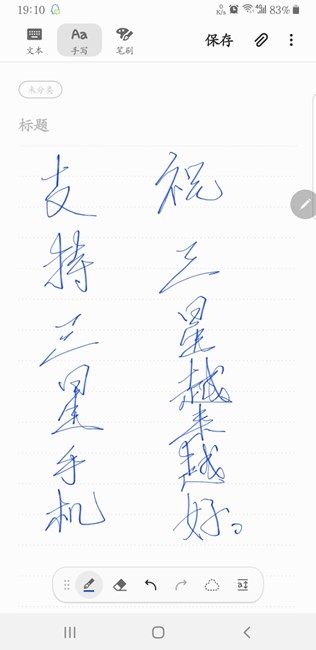 19:10
0 K/s 4G 83%
文本 手写 笔刷 保存
未分类
标题
支持三星手机
祝三星越来越好。